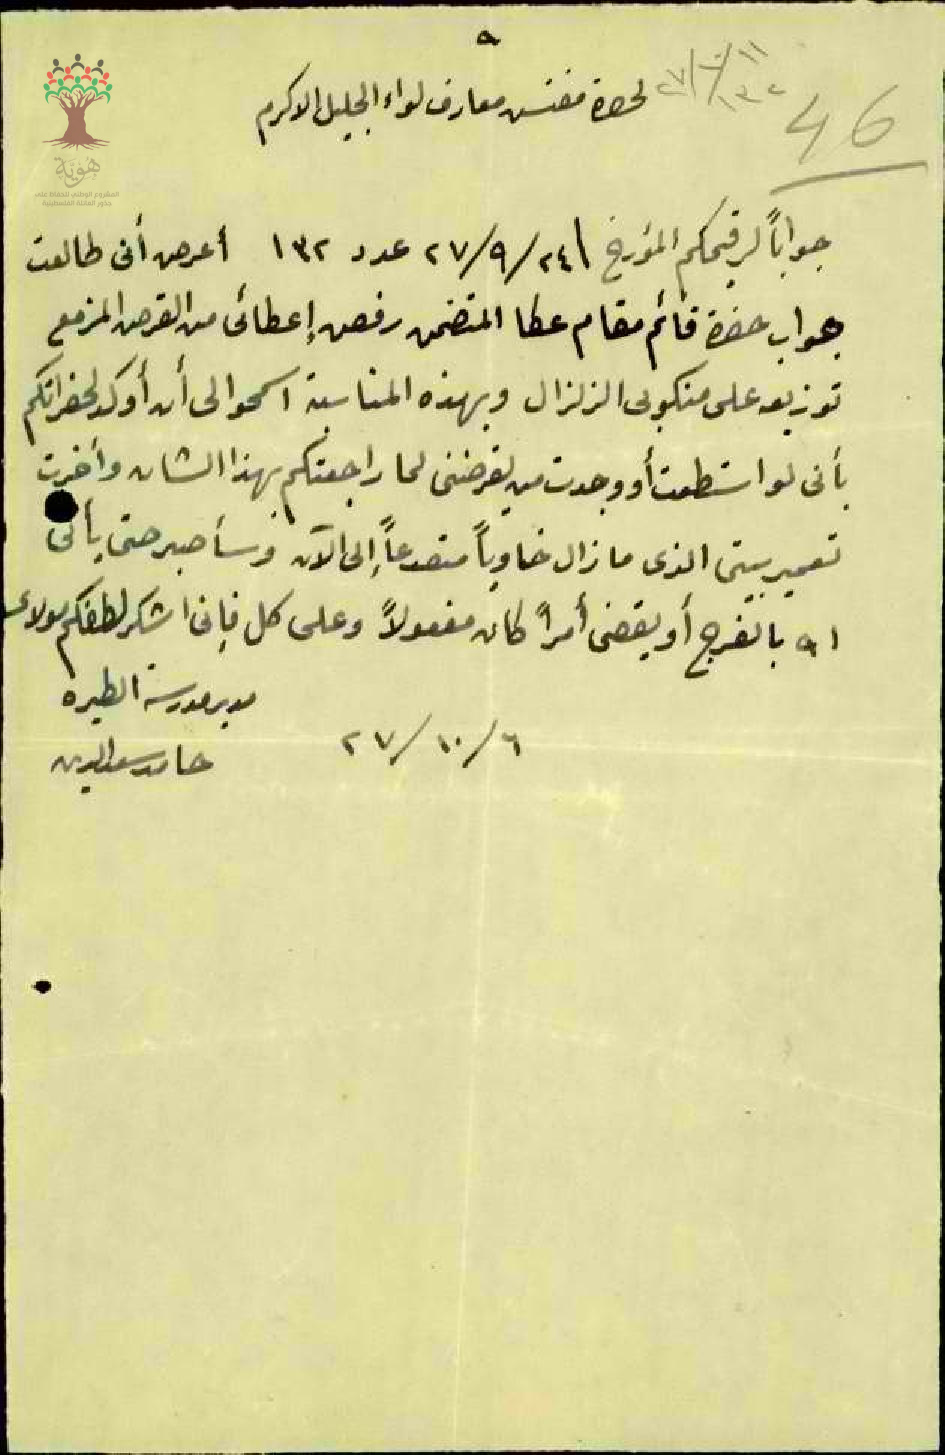 ٩
لحضرة مفتش معارف لواء الجليل الاكرم
٢٧/١٠/١١
١٣٢
46
هوية
المشروع الوطني للحفاظ على
جذور العائلة الفلسطينية
جواباً لرقيمكم المؤرخ ٢٧/٩/٢٤ عدد ١٣٢ أعرض أني طالعت
جواب حضرة قائم مقام عكا المتضمن رفض إعطائي من القرض المزمع
توزيعه على منكوبي الزلزال وبهذه المناسبة اسمحوا لي أن أوكد لحضراتكم
بأنى لو استطعت أو وجدت من يقرضني لما راجعتكم بهذا الشان وأخرت
تعمير بيتي الذي ما زال خاوياً متصدعاً إلى الآن وسأصبر حتى يأتي
الله بالفرج أو يقضى أمراً كان مفعولاً وعلى كل فإني اشكر لطفكم مولاي
مدير مدرسة الطيره
٢٧/١٠/٦
حامد سعد الدين